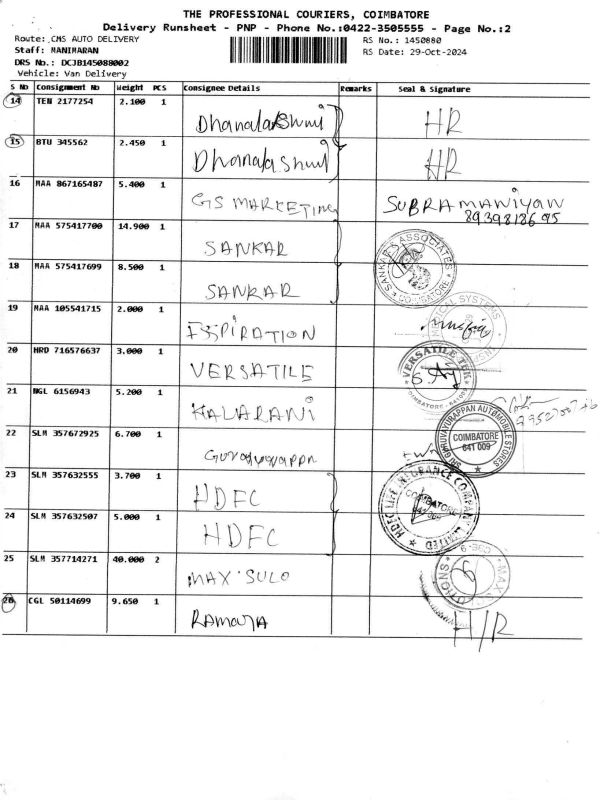 THE PROFESSIONAL COURIERS, COIMBATORE
Delivery Runsheet - PNP - Phone No.:0422-3505555 - Page No.:2
Route: CMS AUTO DELIVERY
RS No.: 1450880
Staff: MANIMARAN
RS Date: 29-Oct-2024
DRS No.: DCJB145088002
Vehicle: Van Delivery
S No Consignment No Weight PCS Consignee Details Remarks Seal & Signature
14 TEN 2177254 2.100 1 Dhanalakshmi HR
15 BTU 345562 2.450 1 Dhanalakshmi HR
16 MAA 867165487 5.400 1 GS MARKETING SUBRAMANIYAN
8939818695
17 MAA 575417700 14.900 1 SANKAR SANKAR & ASSOCIATES COIMBATORE
18 MAA 575417699 8.500 1 SANKAR
19 MAA 105541715 2.000 1 SYSTEMS
20 HRD 716576637 3.000 1 VERSATILE VERSATILE TEK COIMBATORE
21 NGL 6156943 5.200 1 KALARANI
22 SLM 357672925 6.700 1 SRI GURUVAYURAPPAN AUTOMOBILE STORES COIMBATORE 641 009
23 SLM 357632555 3.700 1 HDFC HDFC LIFE INSURANCE COMPANY LIMITED COIMBATORE
24 SLM 357632507 5.000 1 HDFC
25 SLM 357714271 40.000 2 MAX SULO
26 CGL 50114699 9.650 1 RAMOJA H/R